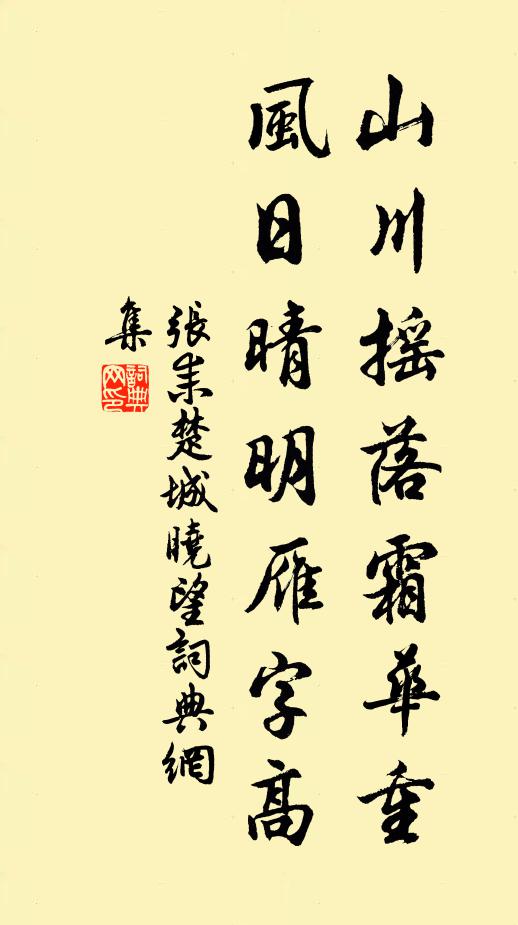 山川摇落霜華重
風日晴明雁字高
張耒楚城曉望詞典網
集
詞典
网印